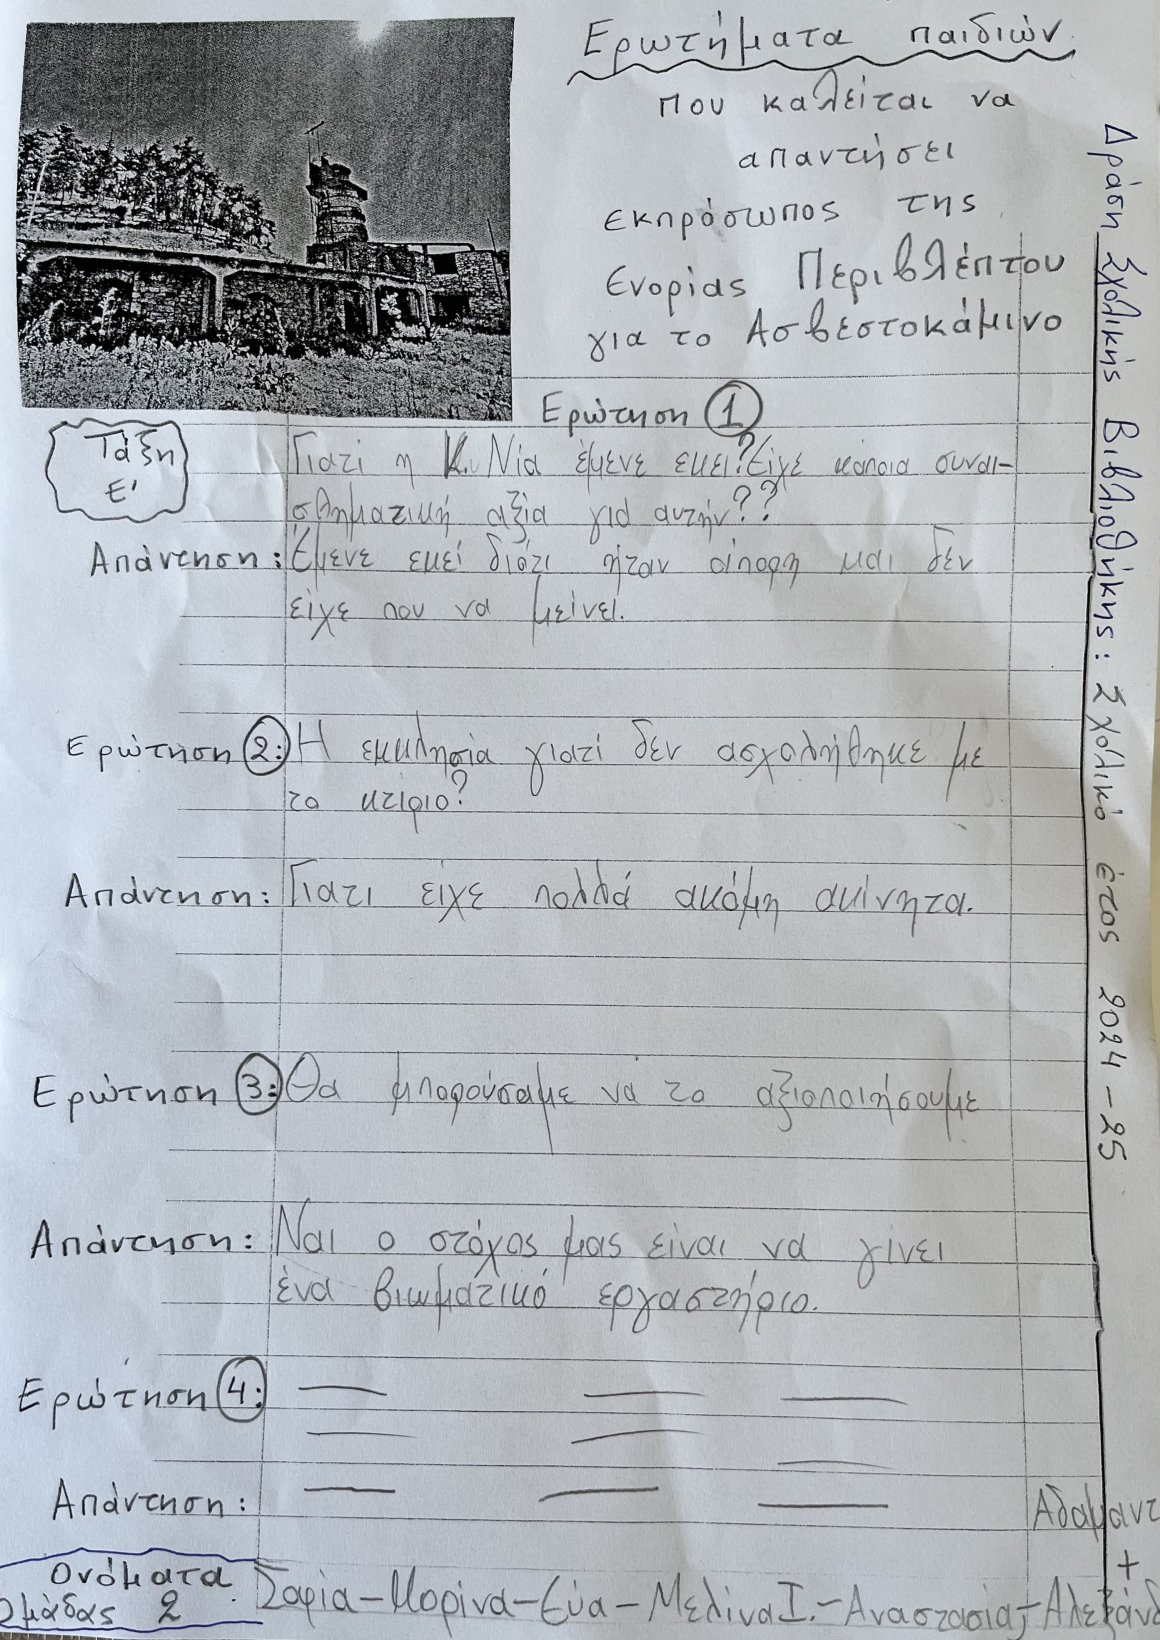 Ερωτήματα παιδιών
που καλείται να
απαντήσει
εκπρόσωπος της
Ενορίας Περιβλέπτου
για το Ασβεστοκάμινο
Ερώτηση 1
Τάξη
Ε'
Γιατί η Κ. Νία έμενε εκει? Είχε κάποια συναι-
σθηματική αξία για αυτήν??
Απάντηση: Έμενε εκεί διότι ήταν άπορη και δεν
είχε που να μείνει.
Ερώτηση 2: Η εκκλησία γιατί δεν ασχολήθηκε με
το κτίριο?
Απάντηση: Γιατι είχε πολλά ακόμη ακίνητα.
Ερώτηση 3: Θα μπορούσαμε να το αξιοποιήσουμε
Απάντηση: Ναι ο στόχος μας είναι να γίνει
ένα βιωματικό εργαστήριο.
Ερώτηση 4:
Απάντηση:
Ονόματα
Ομάδας 2
Σοφία - Μαρίνα - Εύα - Μελίνα Ι. - Αναστασία - Αλεξάνδ
+
Αδαμαντ
Δράση Σχολικής Βιβλιοθήκης: Σχολικό έτος 2024-25